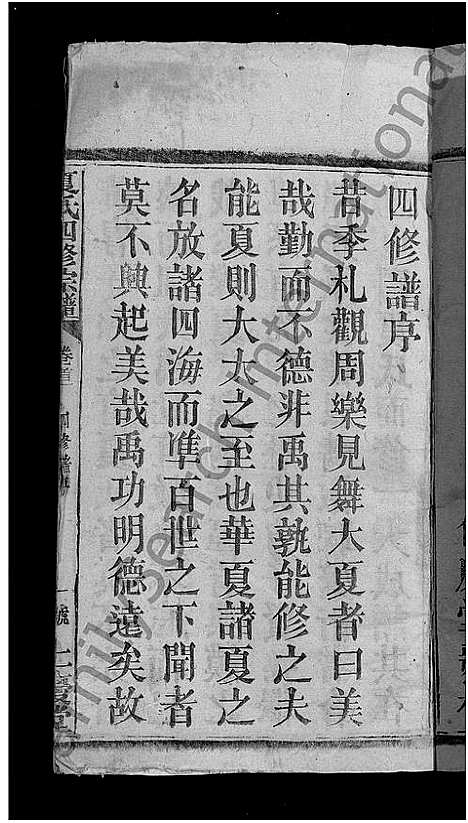 四修譜序
昔季札觀周樂見舞大夏者曰美
哉勤而不德非禹其孰能修之夫
能夏則大大之至也華夏諸夏之
名放諸四海而準百世之下聞者
莫不興起美哉禹功明德遠矣故
夏氏四修宗譜
卷首
四修譜序
一號